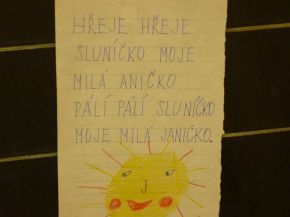 HŘEJE HŘEJE
SLUNÍČKO MOJE
MILÁ ANIČKO
PÁLÍ PÁLÍ SLUNÍČKO
MOJE MILÁ JANIČKO.